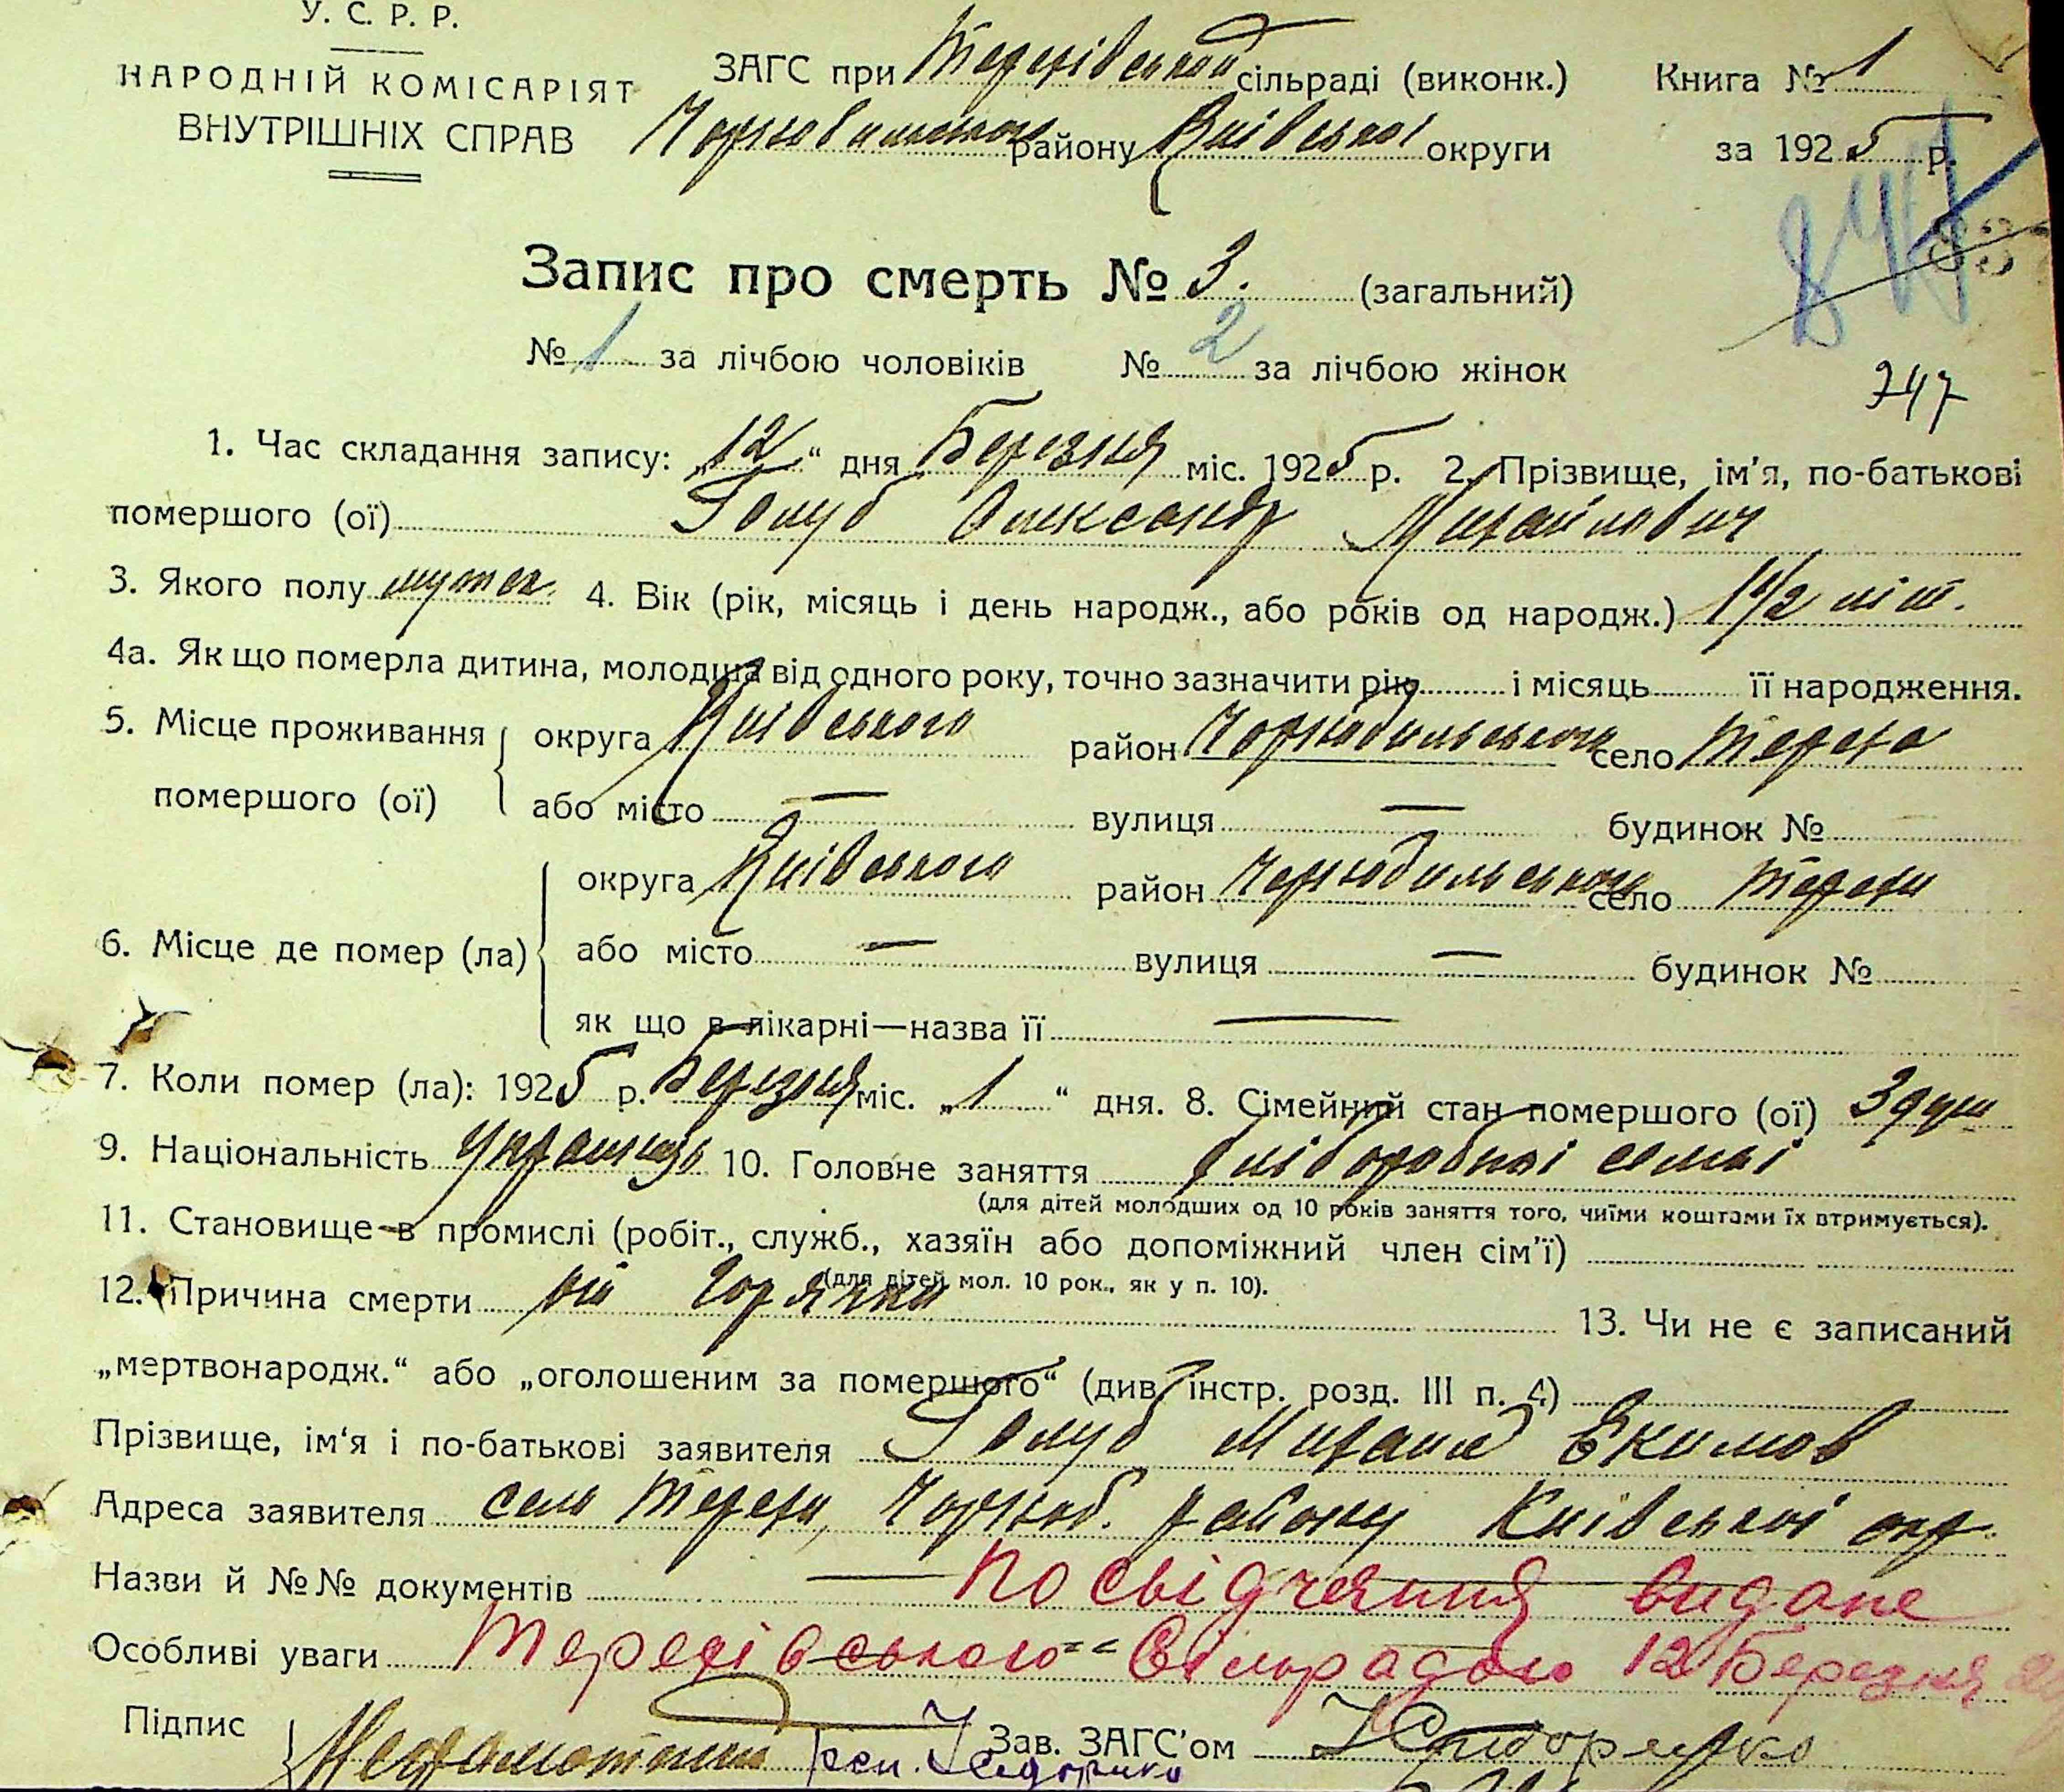 У. С. Р. Р.
НАРОДНІЙ КОМІСАРІЯТ
ВНУТРІШНІХ СПРАВ
ЗАГС при сільраді (виконк.) Книга № 1
району Київської округи за 1925 р.
Запис про смерть № 3. (загальний)
№ 1 за лічбою чоловіків № 2 за лічбою жінок
747
1. Час складання запису: „12“ дня Березня міс. 1925 р. 2. Прізвище, ім'я, по-батькові
помершого (ої) Голуб Олександр Михайлович
3. Якого полу 4. Вік (рік, місяць і день народж., або років од народж.) 1 1/2 літ.
4а. Як що померла дитина, молодша від одного року, точно зазначити рік і місяць її народження.
5. Місце проживання помершого (ої) округа Київського район Чорнобильського село Тереха
або місто — вулиця — будинок №
6. Місце де помер (ла) округа Київського район Чорнобильського село Терехи
або місто — вулиця — будинок №
як що в лікарні—назва її —
7. Коли помер (ла): 1925 р. Березня міс. „1“ дня. 8. Сімейний стан помершого (ої) 3 душ
9. Національність Украинець 10. Головне заняття хліборобної семьі
(для дітей молодших од 10 років заняття того, чиїми коштами їх втримується).
11. Становище в промислі (робіт., служб., хазяїн або допоміжний член сім'ї)
(для дітей мол. 10 рок., як у п. 10).
12. Причина смерти від горячки 13. Чи не є записаний
„мертвонародж.“ або „оголошеним за помершого“ (див. інстр. розд. III п. 4)
Прізвище, ім'я і по-батькові заявителя Голуб Михаил Екимов
Адреса заявителя село Терехи, Чорноб. району Київської окр.
Назви й №№ документів — Посвідчення видане
Особливі уваги Терехівською Сільрадою 12 Березня
Підпис Неграмотний Зав. ЗАГС'ом